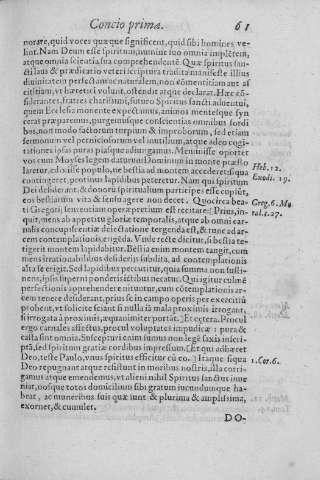 Concio prima. 61
norare, quid voces quæque significent, quid sibi homines ve-
lint. Nam Deum esse spiritum, numine suo omnia implêtem,
atque omnia scientia sua comprehendentē. Quæ spiritus fun-
ctî laus & prædicatio veteri scriptura tradita manifeste illius
divinitatem perfectam ac naturalem, non cōmūnitam aut as
citîtiam, vt hæretici volunt, ostendit atque declarat. Hæc cō-
siderantes, fratres charissimi, futuro Spiritus sancti aduentui,
quem Ecclesia monente expectamus, animos mentesque syn
ceras præparemus, purgemúsque conscientias omnibus sordi
bus, non modo factorum turpium & improborum, sed etiam
sermonum vel perniciosorum vel inutilium, atque adeo cogi-
tationes ipsas patrias piasque adiungamus. Meminisse oportet
vos cum Moyses legem daturum Dominum in monte præsto
laretur, edixisse populo, ne bestia ad montem accederet: si qua
contingeret, pontium lapidibus peteretur. Nam qui spiritum
Dei desiderant, & donorū spiritualium participes esse cupiūt,
eos bestiarum vita & sensu agere non decet. Quocirca bea-
ti Gregorij sententiam operæpretium est recitare: [Prius, in-
quit, mens ab appetitu gloriæ temporalis, atque ab omni car-
nalis concupiscentiæ delectatione tergenda est, & tunc ad ar-
cem contemplationis erigēda. Vnde recte dicitur, si bestia te-
tigerit montem lapidabitur. Bestia enim montem tangit, cum
mens irrationabilibus desiderijs subdita, ad contemplationis
alta se erigit. Sed lapidibus percutitur, quia summa non susti-
nens, ipsis superni ponderis ictibus necatur. Qui igitur culmē
perfectionis apprehendere nituntur, cum cōtemplationis ar-
cem tenere desiderant, prius se in campo operis per exercitiū
probent, vt solicite sciant si nulla iā mala proximis irrogant,
si irrogata à proximis, æquanimiter portāt.] Et cętera. Procul
ergo carnales affectus, procul voluptates impudicæ: pura &
casta sint omnia. Suscepturi enim sumus non legē saxis inscri-
ptā, sed spiritum gratiæ cordibus impressum. [Et qui adhæret
Deo, teste Paulo, vnus spiritus efficitur cū eo.] Itaque si qua
Deo repugnant atque resistunt in moribus nostris, illa corri-
gamus atque emendemus, vt alieni nihil Spiritus sanctus inue
niat, nosque totos domicilium sibi gratum iucundumque ha-
beat, ac muneribus suis quæ sunt & plurima & amplissima,
exornet, & cumulet.
DO-
Heb. 12.
Exodi. 19.
Greg. 6. Mo
ral. c. 27.
1. Cor. 6.